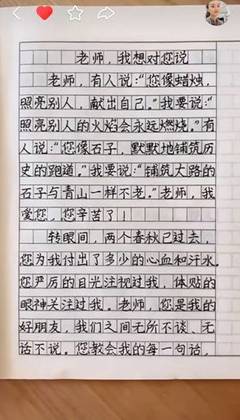 老师，我想对您说
老师，有人说：“您像蜡烛，
照亮别人，献出自己。”我要说：“
照亮别人的火焰会永远燃烧。”有
人说：“您像石子，默默地铺筑历
史的跑道。”我要说：“铺筑大路的
石子与青山一样不老。”老师，我
爱您，您辛苦了！
转眼间，两个春秋已过去，
您为我付出了多少的心血和汗水。
您严厉的目光注视过我，体贴的
眼神关注过我。老师，您是我的
好朋友，我们之间无所不谈、无
话不说。您教会我的每一句话，